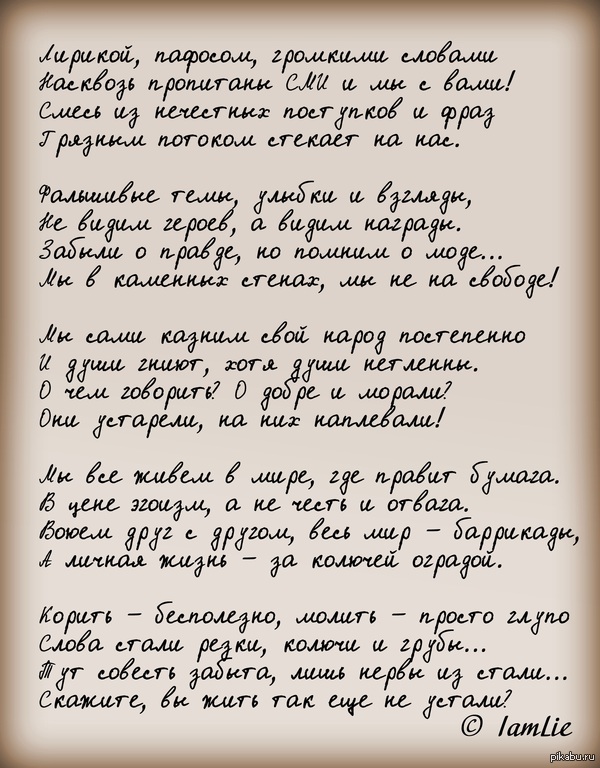 Лирикой, пафосом, громкими словами
Насквозь пропитаны СМИ и мы с вами!
Смесь из нечестных поступков и фраз
Грязным потоком стекает на нас.

Фальшивые темы, улыбки и взгляды,
Не видим героев, а видим награды.
Забыли о правде, но помним о моде...
Мы в каменных стенах, мы не на свободе!

Мы сами казним свой народ постепенно
И души гниют, хотя души нетленны.
О чем говорить? О добре и морали?
Они устарели, на них наплевали!

Мы все живем в мире, где правит бумага.
В цене эгоизм, а не честь и отвага.
Воюем друг с другом, весь мир – баррикады,
А личная жизнь – за колючей оградой.

Корить – бесполезно, молить – просто глупо
Слова стали резки, колючи и грубы...
Тут совесть забыта, лишь нервы из стали...
Скажите, вы жить так еще не устали?
© IamLie
pikabu.ru